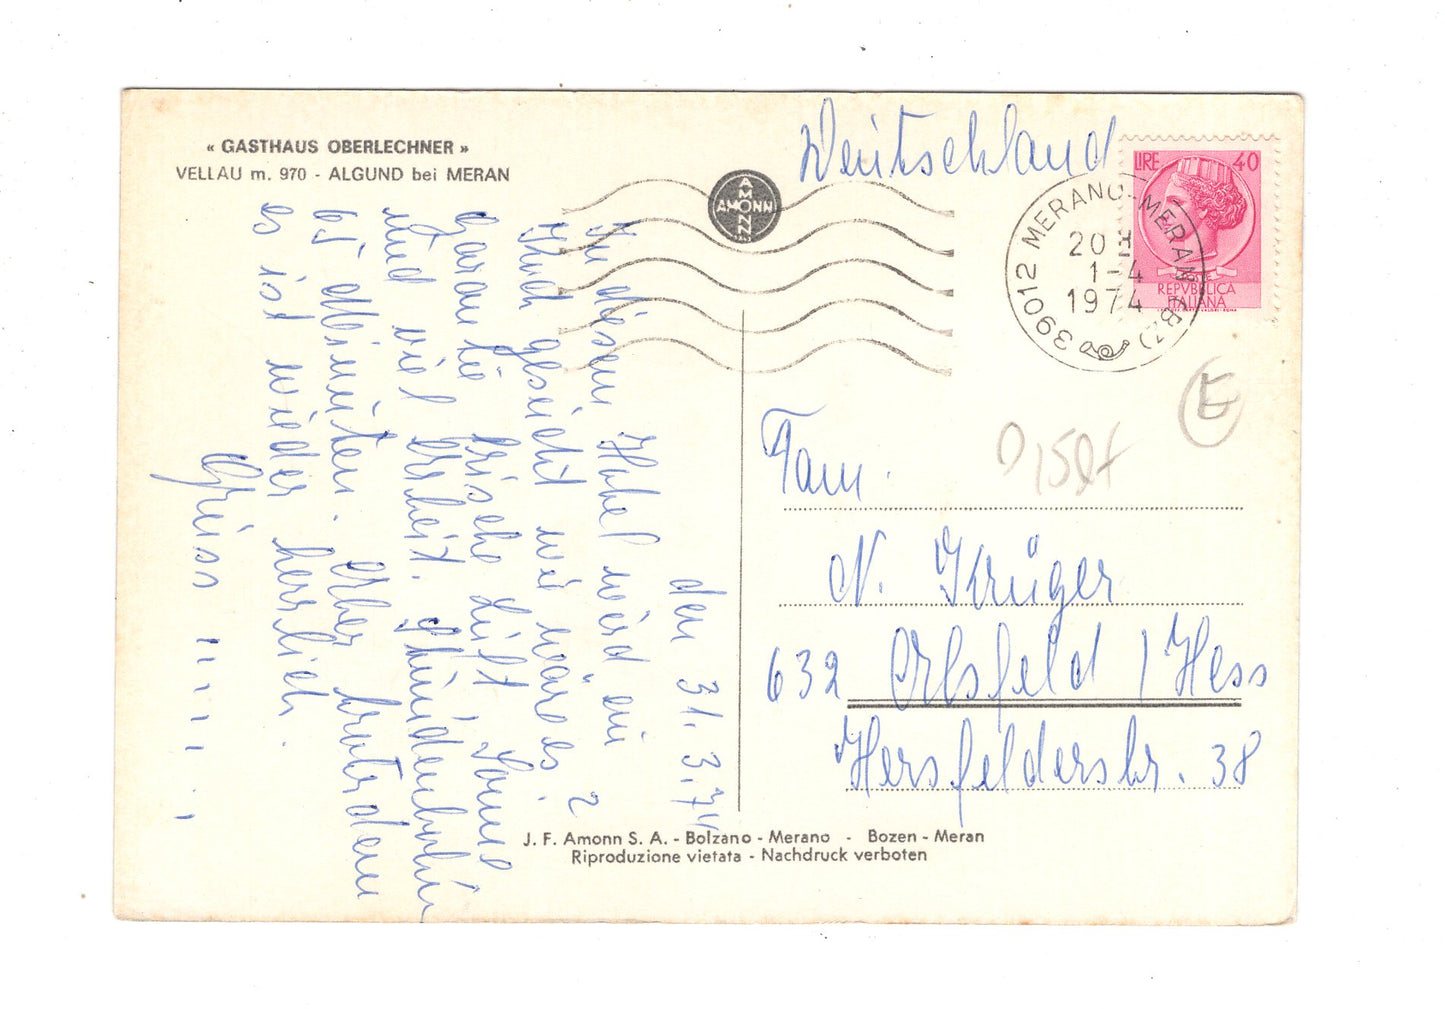 « GASTHAUS OBERLECHNER »
VELLAU m. 970 - ALGUND bei MERAN
AMONN
AMONN
Deutschland
LIRE 40
REPVBBLICA
ITALIANA
39012 MERANO - MERAN (BZ)
20
1-4
1974
E
Fam.
N. Krüger
632 Orlsfeld / Hess
Hersfelderstr. 38
den 31.3.74
In diesem Hotel wird ein
Kind gesucht wie wäre es?
Garantie frische Luft Sonne
und viel Arbeit.
ist drinnen. Aber trotzdem
es ist wieder herrlich.
Gruss
J. F. Amonn S. A. - Bolzano - Merano - Bozen - Meran
Riproduzione vietata - Nachdruck verboten